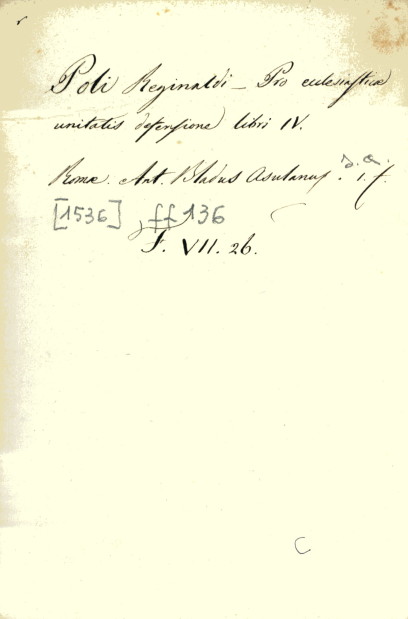 Poli Reginaldi – Pro ecclesiasticæ
unitatis defensione libri IV.
Romæ. Ant. Bladus Asulanus. s. a. 1. f.
[1536] ff 136
F. VII. 26.
C